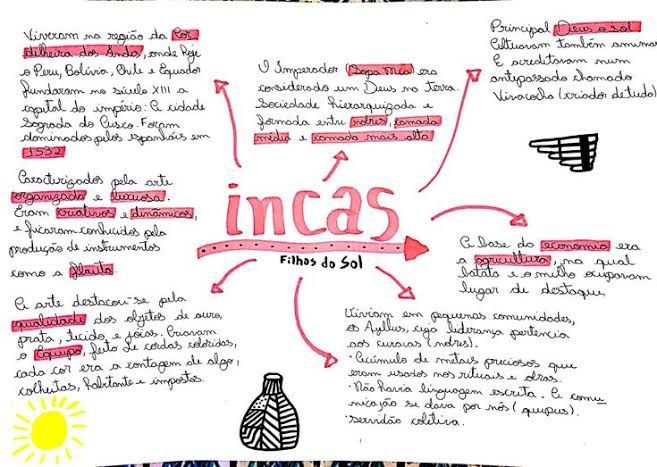 Viveram na região da Cor
dilheira dos Andes, onde hoje
o Peru, Bolívia, Chile e Equador
fundaram no século XIII a
capital do império: A cidade
Sagrada do Cusco. Foram
dominados pelos espanhóis em
1532
O Imperador (Sapa Inca) era
considerado um Deus na terra.
Sociedade hierarquizada e
formada entre nobres, camada
média e camada mais alta
Principal Deus o sol
Cultuavam também animais
E acreditavam num
antepassado chamado
Viracocha (criador de tudo)
Caracterizados pela arte
organizada e luxuosa.
Eram criativos e dinâmicos,
e ficaram conhecidos pela
produção de instrumentos
como a flauta
incas
Filhos do Sol
A base da economia era
a agricultura, na qual
batata e o milho ocupavam
lugar de destaque
A arte destacou-se pela
qualidade dos objetos de ouro,
prata, tecido e joias. Criaram
o Equipo, feito de cordas coloridas,
cada cor era a contagem de algo,
colheitas, habitante e impostos.
Viviam em pequenas comunidades,
os Ayllus, cuja liderança pertencia
aos curacas (nobres).
· Acúmulo de metais preciosos que
eram usados nos rituais e obras.
· Não havia linguagem escrita. A comu
nicação se dava por nós (quipus).
· servidão coletiva.